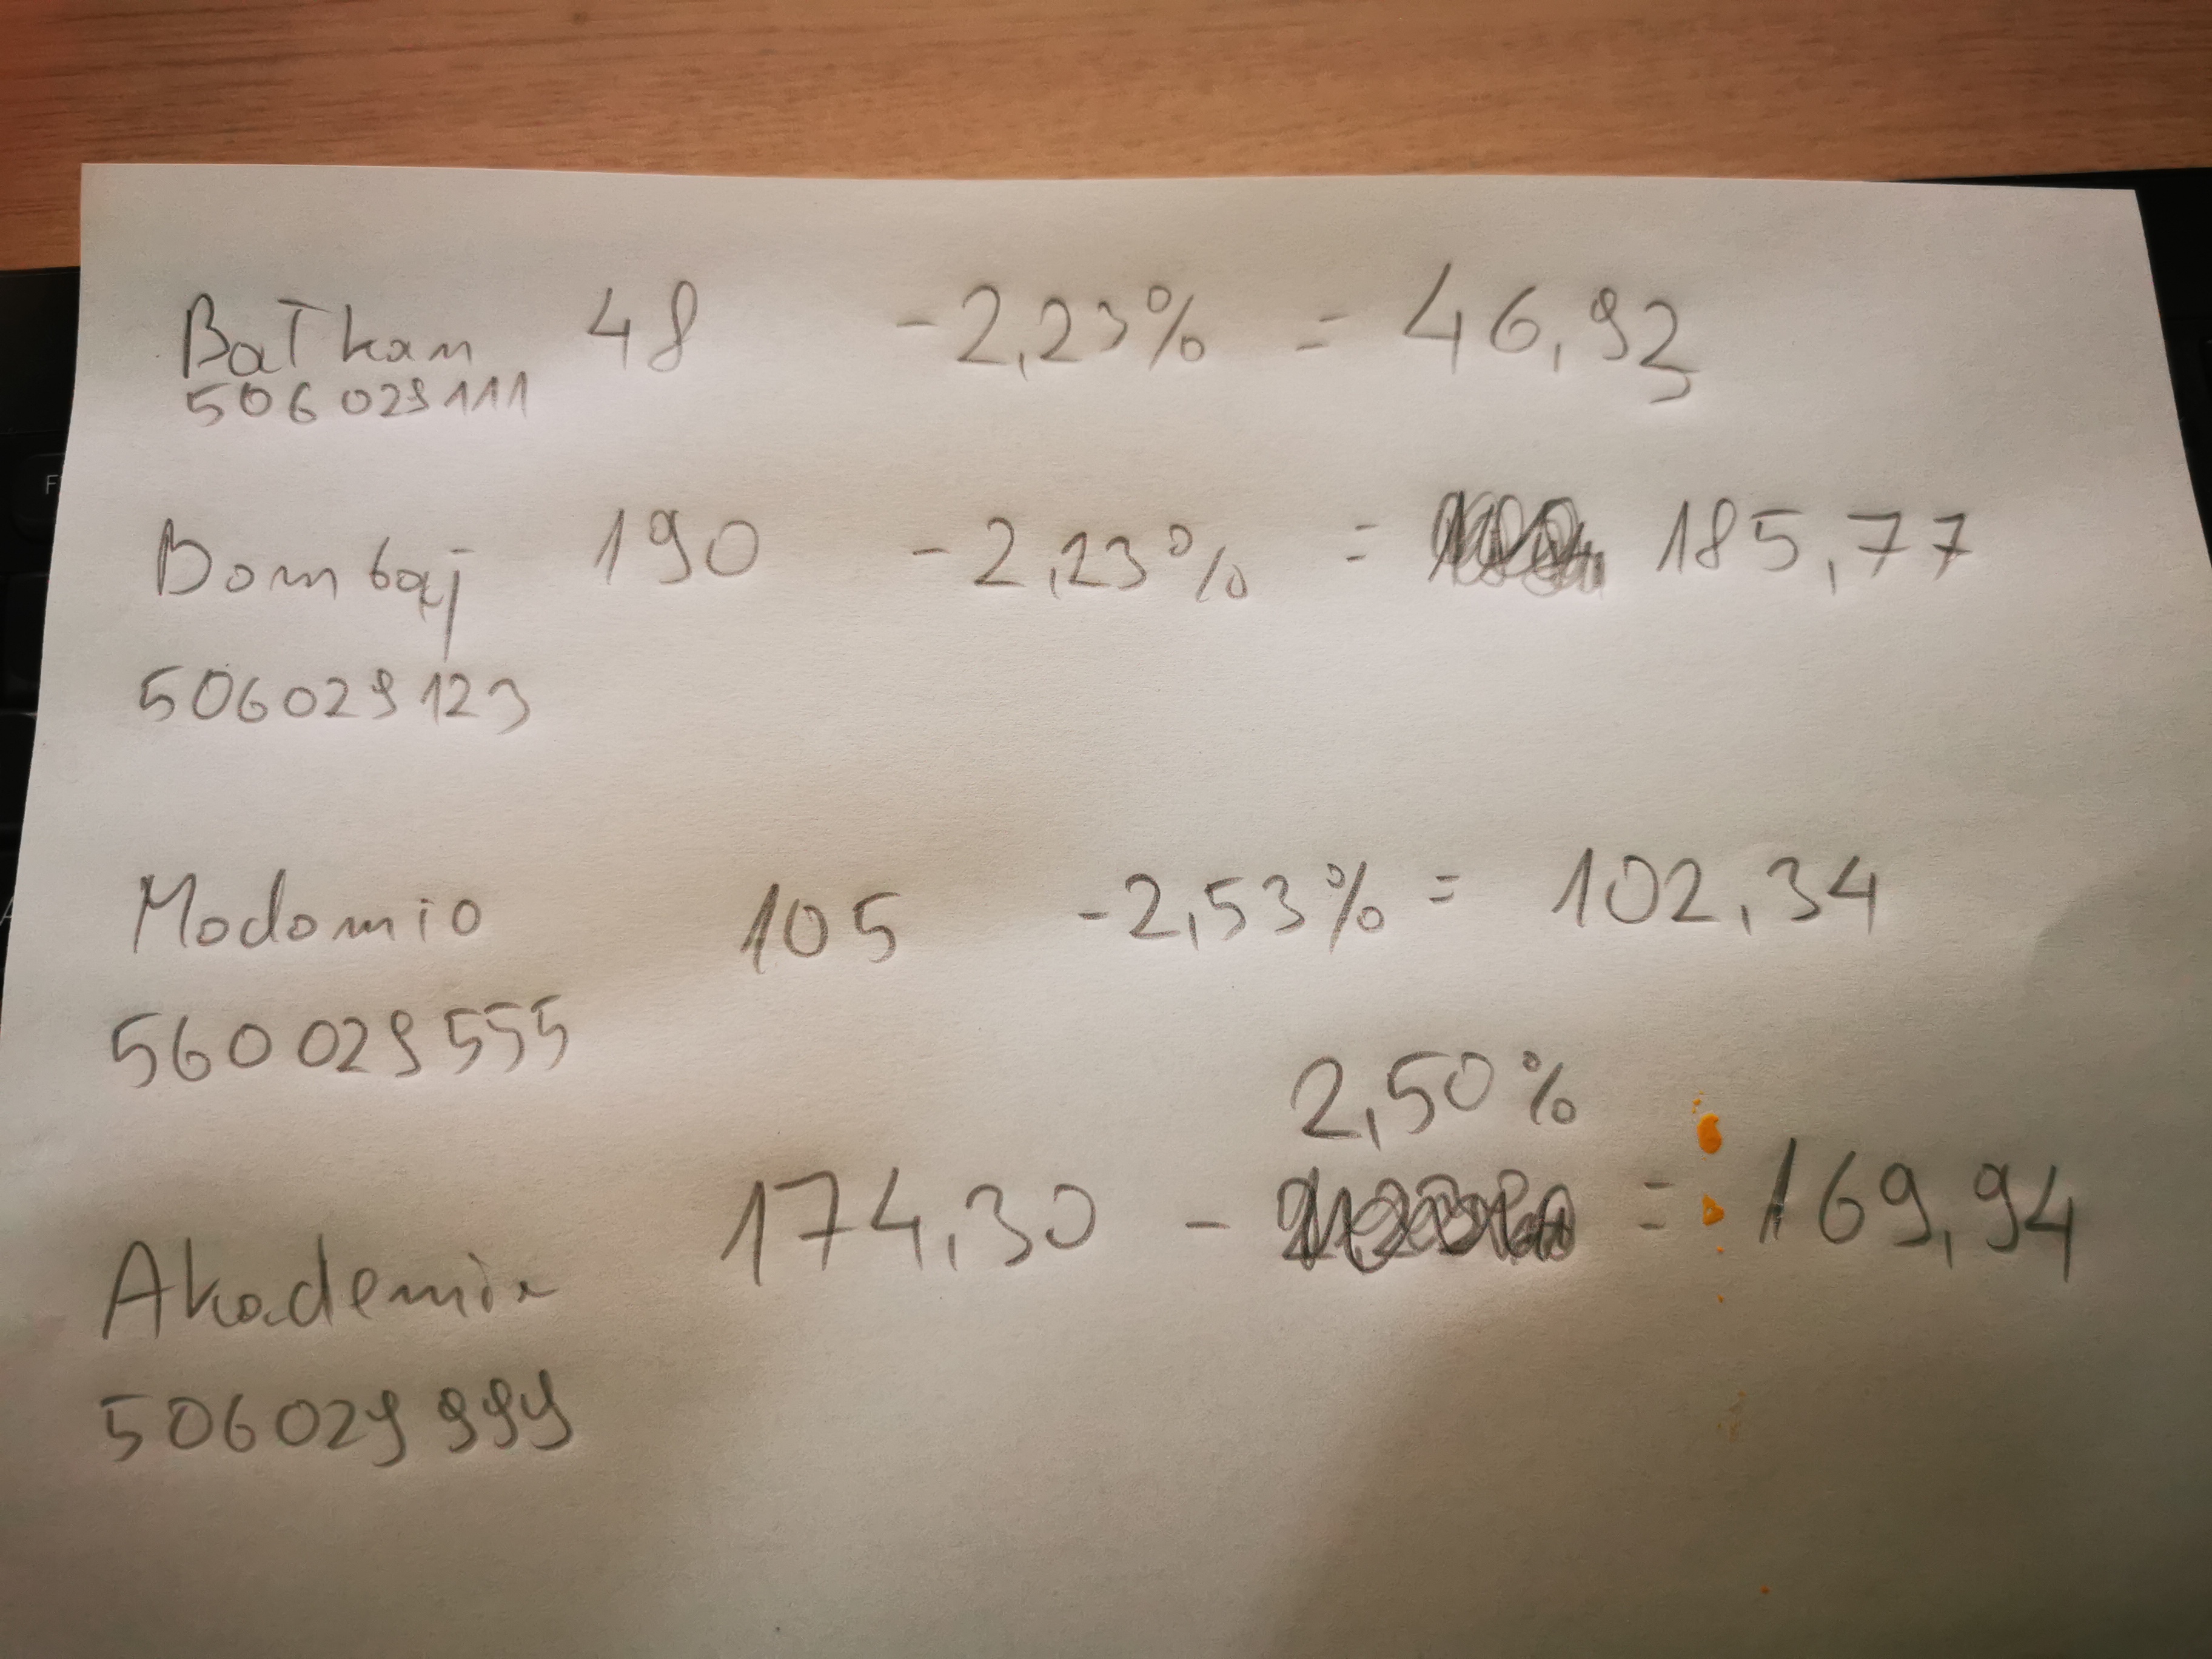 Bałkan 48 -2,23% = 46,93
506029111
Bombaj 190 -2,23% = 185,77
506029123
Modomio 105 -2,53% = 102,34
560029555
2,50%
Akademia 174,30 - = 169,94
506029999